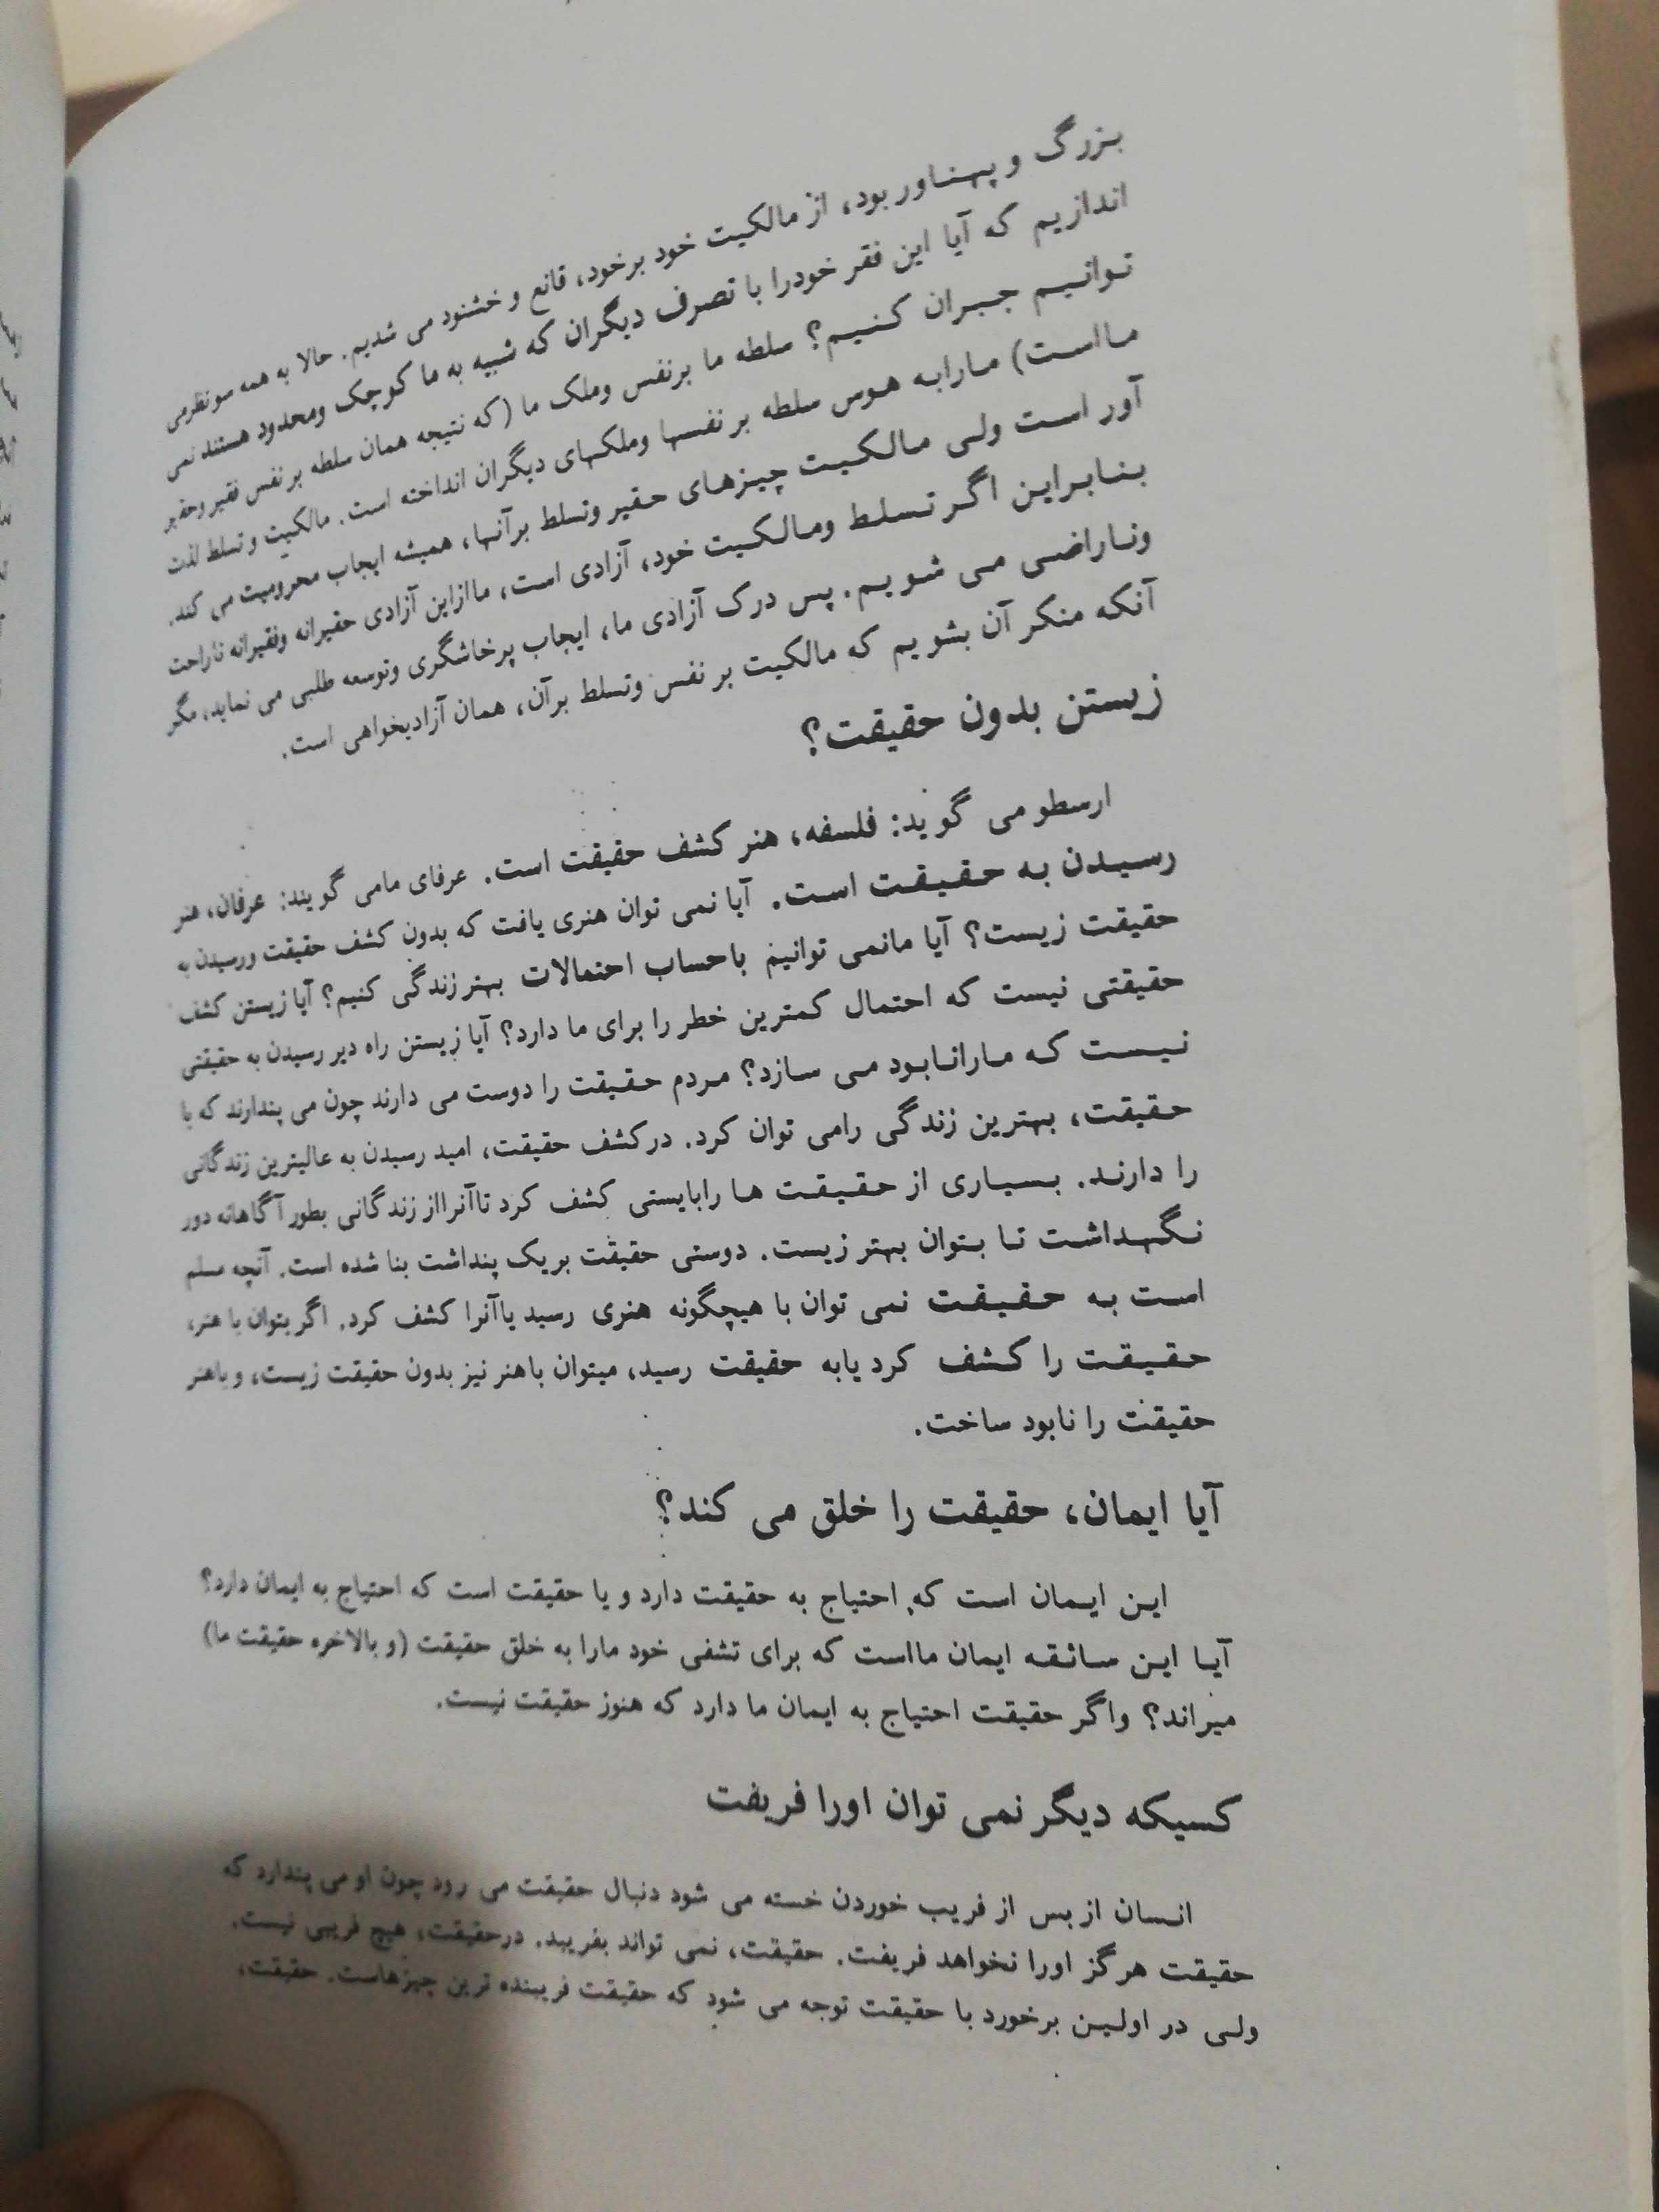 بزرگ و پهناور بود، از مالکیت خود برخود، قانع و خشنود می شدیم. حالا به همه سونظرمی
اندازیم که آیا این فقر خودرا با تصرف دیگران که شبیه به ما کوچک ومحدود هستند نمی
توانیم جبران کنیم؟ سلطه ما برنفس وملک ما (که نتیجه همان سلطه بر نفس فقیر وحقیر
مااست) مارابه هوس سلطه بر نفسها وملکهای دیگران انداخته است. مالکیت و تسلط لذت
آور است ولی مالکیت چیزهای حقیر وتسلط برآنها، همیشه ایجاب محرومیت می کند.
بنابراین اگر تسلط ومالکیت خود، آزادی است، ماازاین آزادی حقیرانه وفقیرانه ناراحت
وناراضی می شویم. پس درک آزادی ما، ایجاب پرخاشگری وتوسعه طلبی می نماید، مگر
آنکه منکر آن بشویم که مالکیت بر نفس وتسلط برآن، همان آزادیخواهی است.
زیستن بدون حقیقت؟
ارسطو می گوید: فلسفه، هنر کشف حقیقت است. عرفای مامی گویند: عرفان، هنر
رسیدن به حقیقت است. آیا نمی توان هنری یافت که بدون کشف حقیقت ورسیدن به
حقیقت زیست؟ آیا مانمی توانیم باحساب احتمالات بهتر زندگی کنیم؟ آیا زیستن کشف
حقیقتی نیست که احتمال کمترین خطر را برای ما دارد؟ آیا زیستن راه دیر رسیدن به حقیقتی
نیست که مارانابود می سازد؟ مردم حقیقت را دوست می دارند چون می پندارند که با
حقیقت، بهترین زندگی رامی توان کرد. درکشف حقیقت، امید رسیدن به عالیترین زندگانی
را دارند. بسیاری از حقیقت ها رابایستی کشف کرد تاآنرااز زندگانی بطور آگاهانه دور
نگهداشت تا بتوان بهتر زیست. دوستی حقیقت بریک پنداشت بنا شده است. آنچه مسلم
است به حقیقت نمی توان با هیچگونه هنری رسید یاآنرا کشف کرد. اگر بتوان با هنر،
حقیقت را کشف کرد یابه حقیقت رسید، میتوان باهنر نیز بدون حقیقت زیست، و باهنر
حقیقت را نابود ساخت.
آیا ایمان، حقیقت را خلق می کند؟
این ایمان است که احتیاج به حقیقت دارد و یا حقیقت است که احتیاج به ایمان دارد؟
آیا این سائقه ایمان مااست که برای تشفی خود مارا به خلق حقیقت (و بالاخره حقیقت ما)
میراند؟ واگر حقیقت احتیاج به ایمان ما دارد که هنوز حقیقت نیست.
کسیکه دیگر نمی توان اورا فریفت
انسان از بس از فریب خوردن خسته می شود دنبال حقیقت می رود چون او می پندارد که
حقیقت هرگز اورا نخواهد فریفت. حقیقت، نمی تواند بفریبد. درحقیقت، هیچ فریبی نیست.
ولی در اولین برخورد با حقیقت توجه می شود که حقیقت فریبنده ترین چیزهاست. حقیقت،